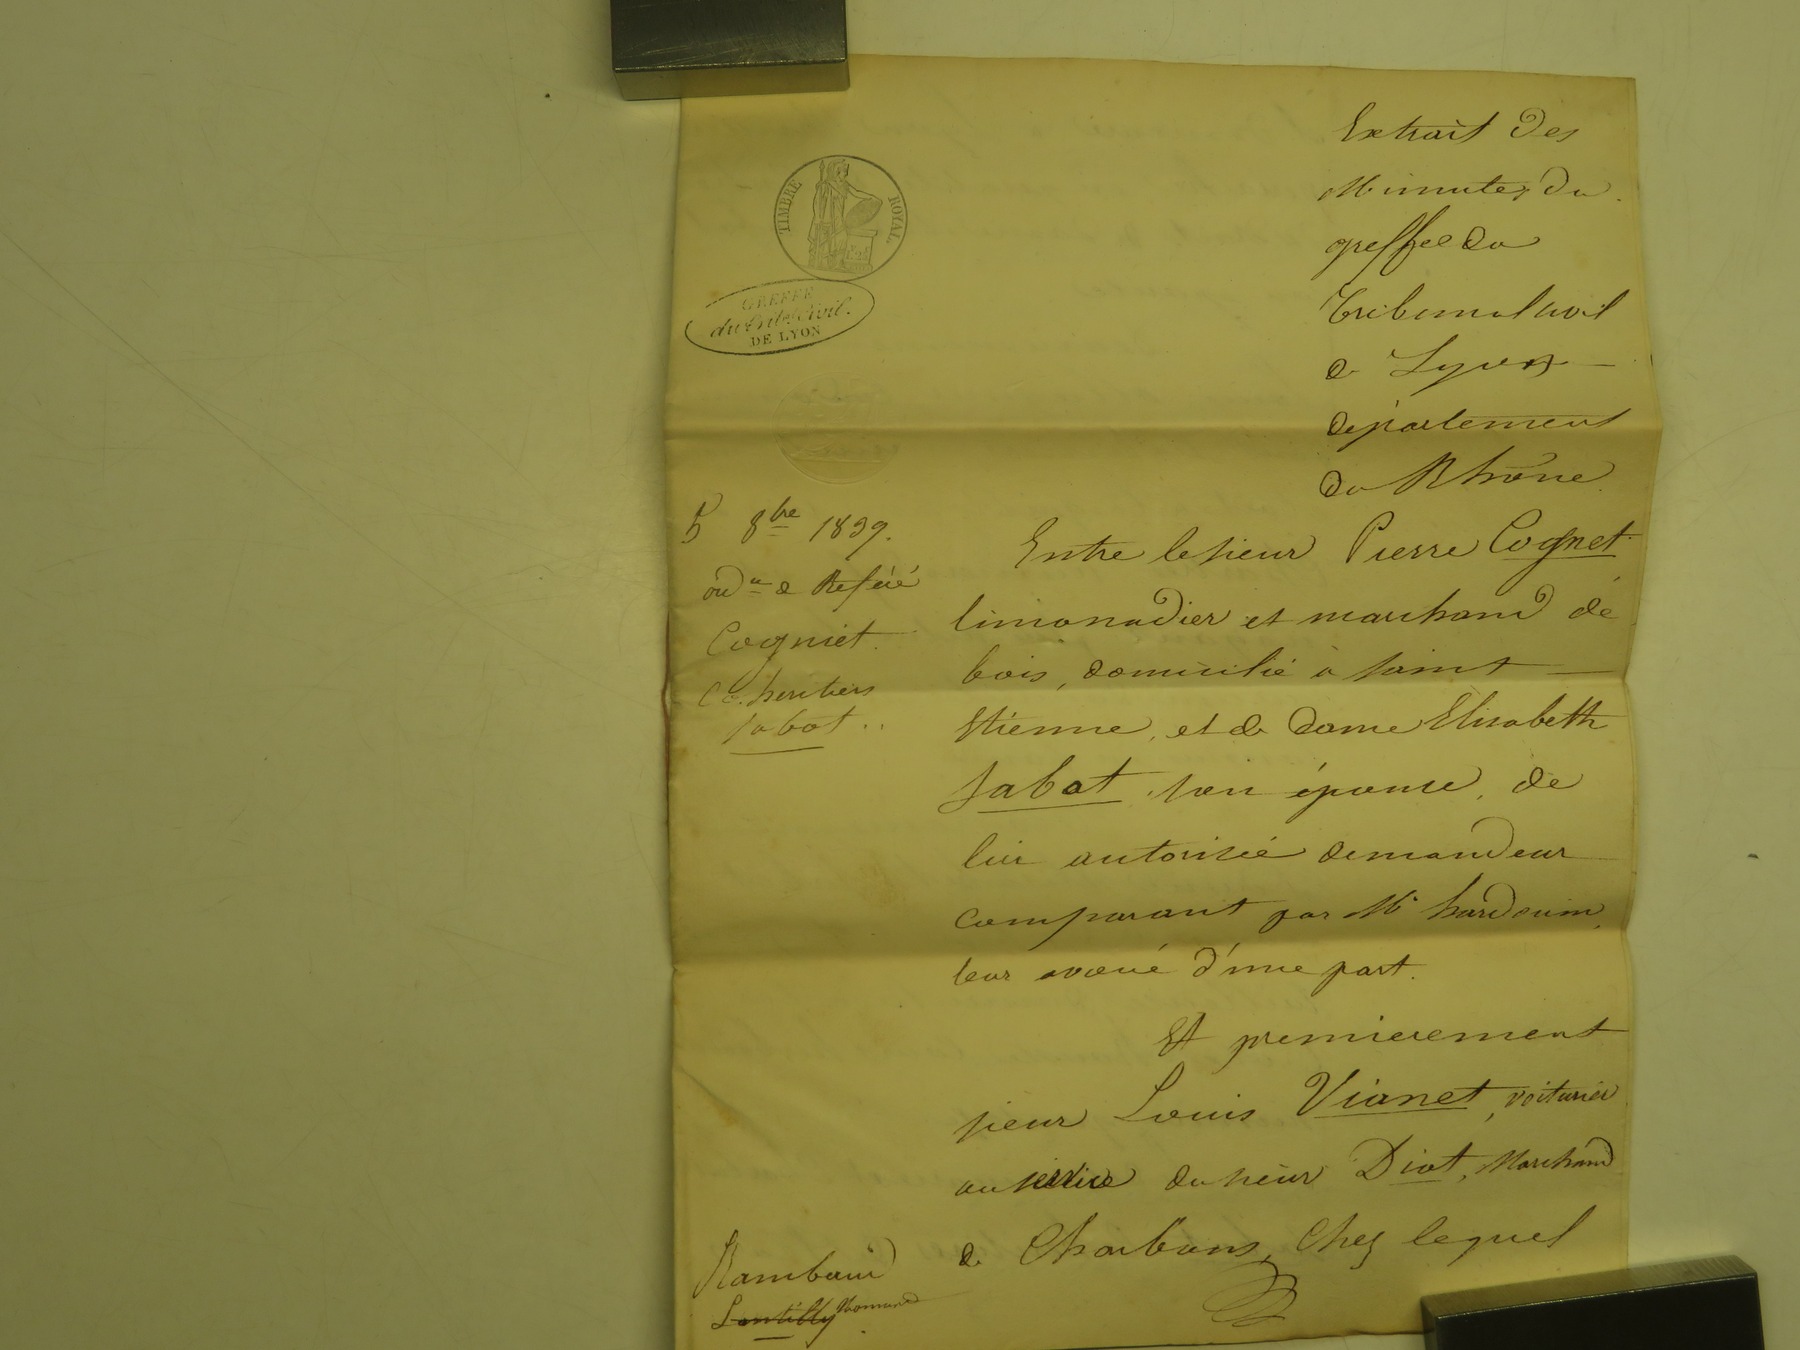 Extrait des
Minutes du
greffe du
Tribunal Civil
de Lyon
département
du Rhône.
TIMBRE ROYAL
GREFFE
du Tribal Civil.
DE LYON
5 8bre 1839.
ordce de Référé
Cogniet.
Co. heritiers
Jabot..
Entre le sieur Pierre Cognet
limonadier et marchand de
bois, domicilié à Saint
Etienne, et de dame Elisabeth
Jabot, son épouse, de
lui autorisée demandeur
comparant par Me hardouin,
leur avoué d'une part.
Et premierement
sieur Louis Vianet, voiturier
au service du sieur Diot, Marchand
de Charbons, Chez lequel
Rambaud
Lentilly